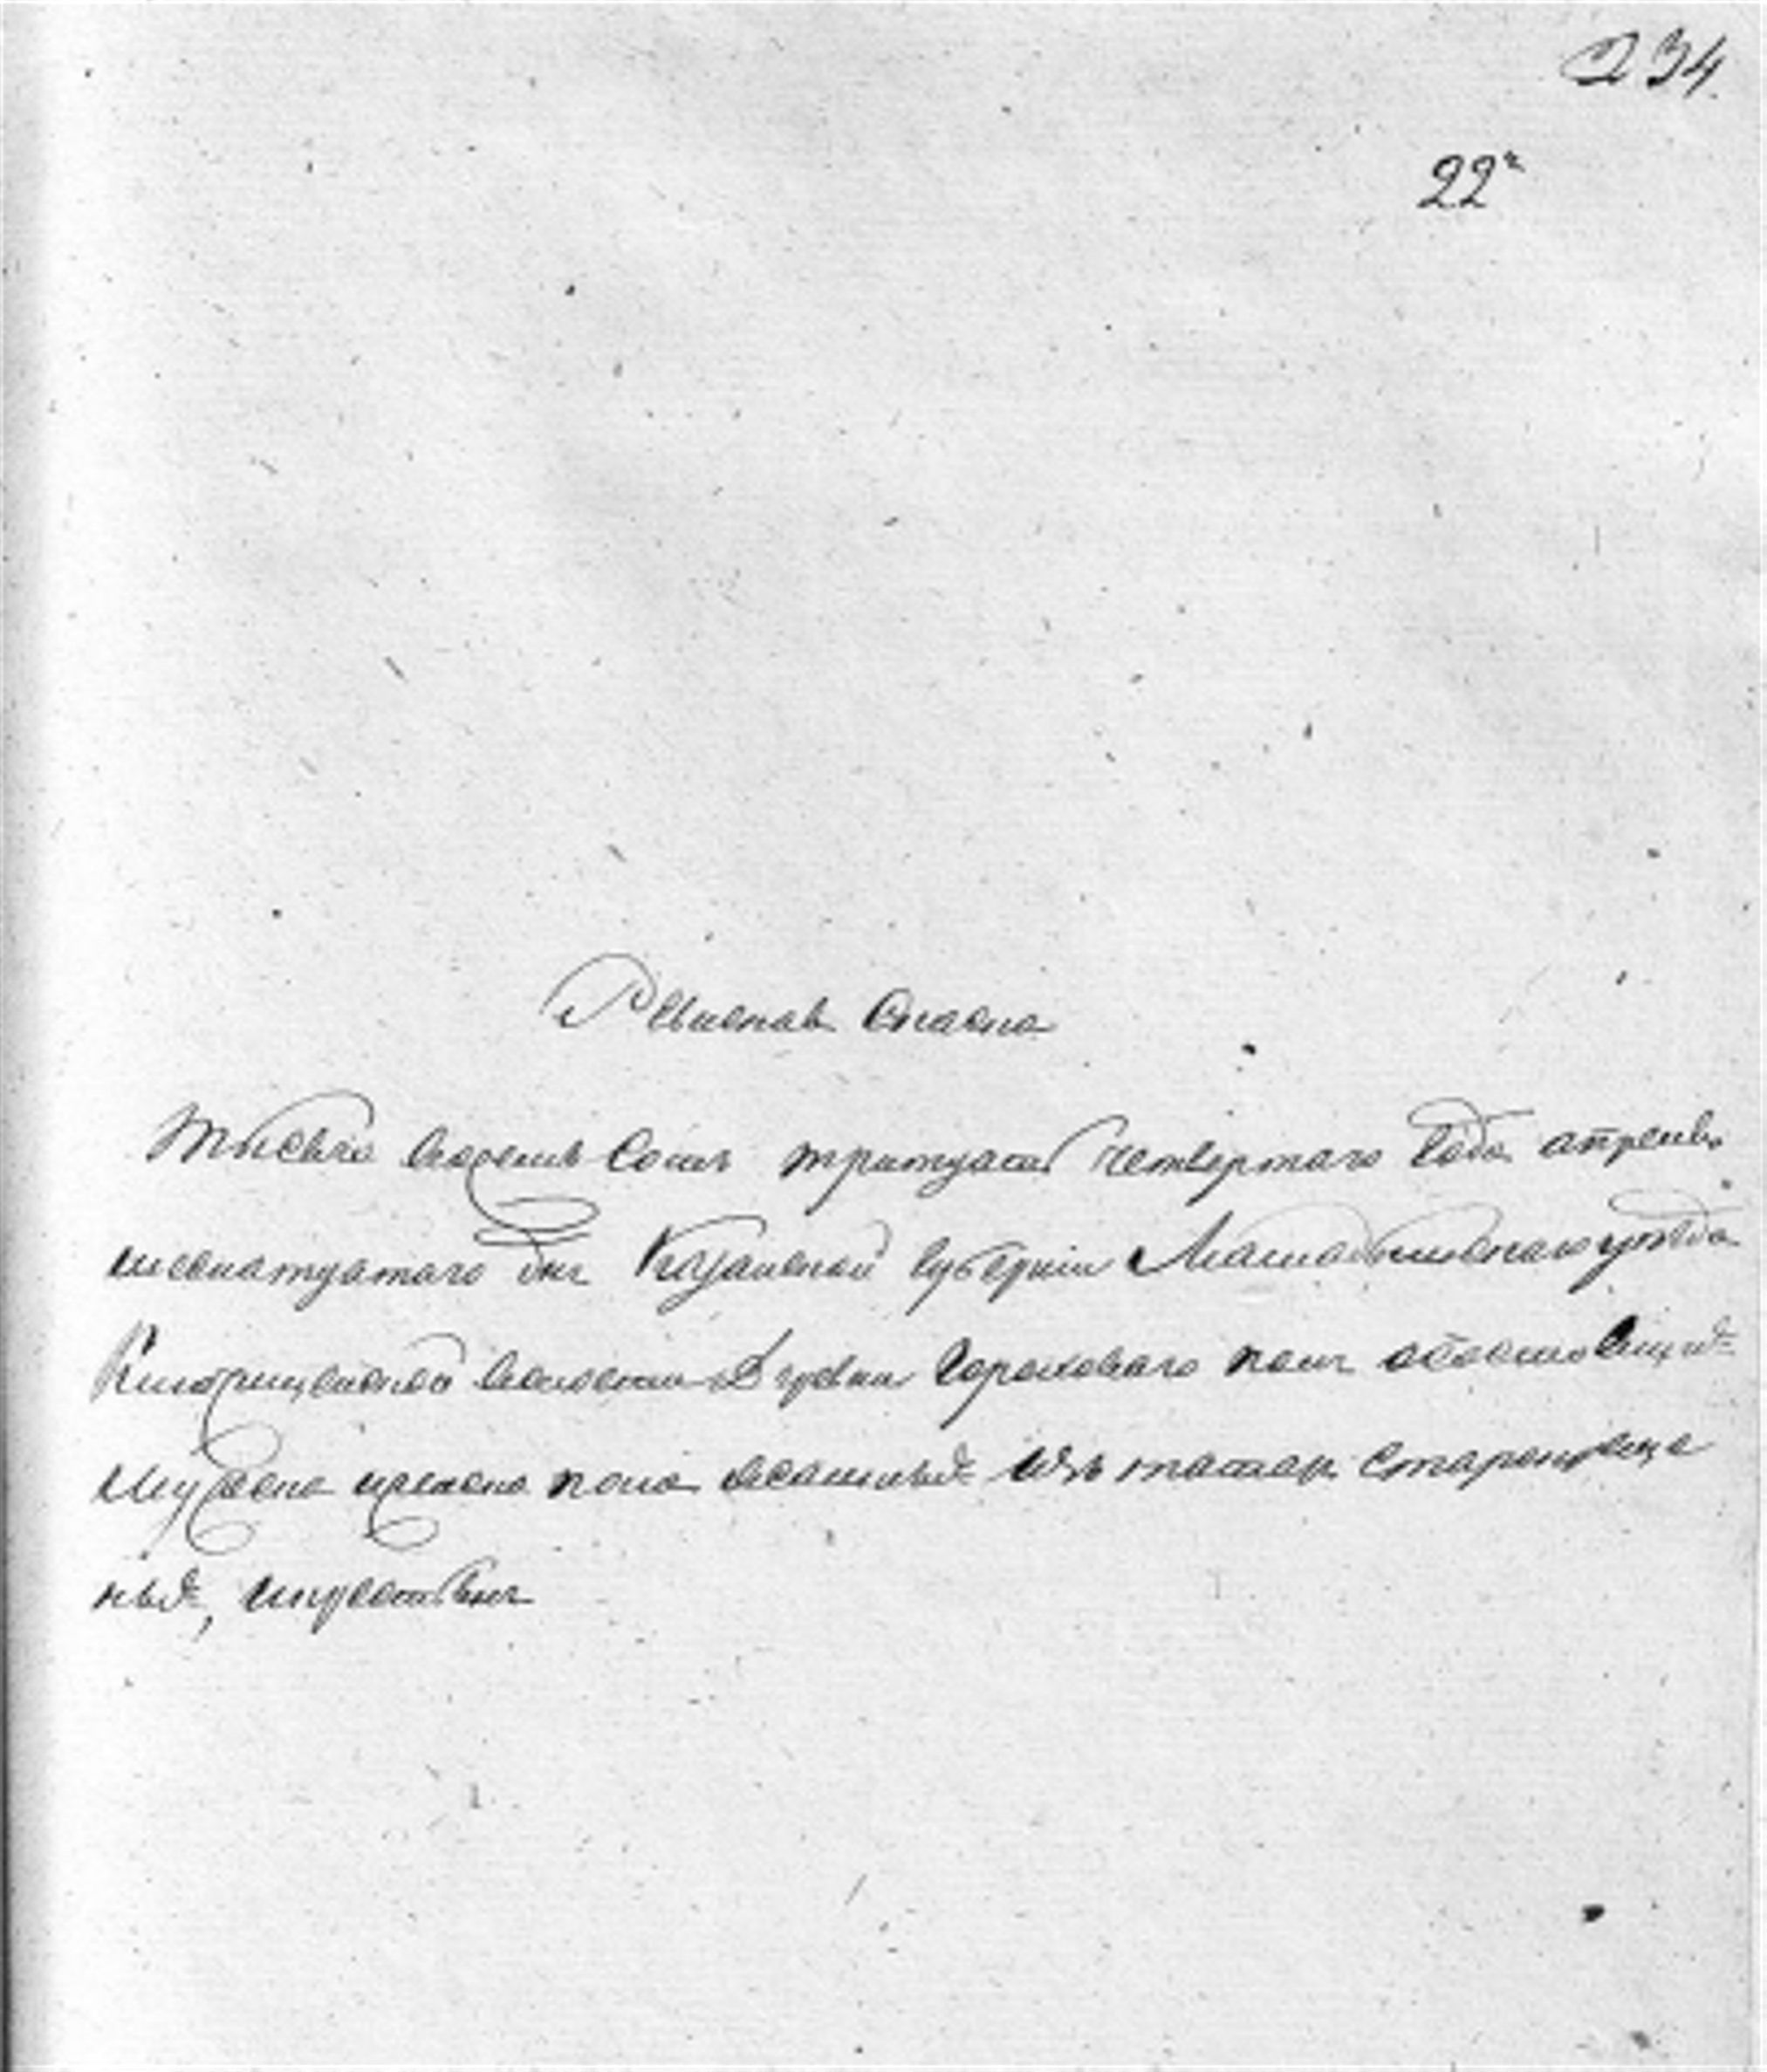 234.
22
Ревиская Скаска
Тысяча восемь сотъ тритцать четвертаго года апреля
шеснатцатаго дня Казанской губернии Мамадышского уезда
волости деревни Горохового поля о состоящихъ
мужеска и женска пола ясашныхъ изъ татаръ старокреще
ныхъ,